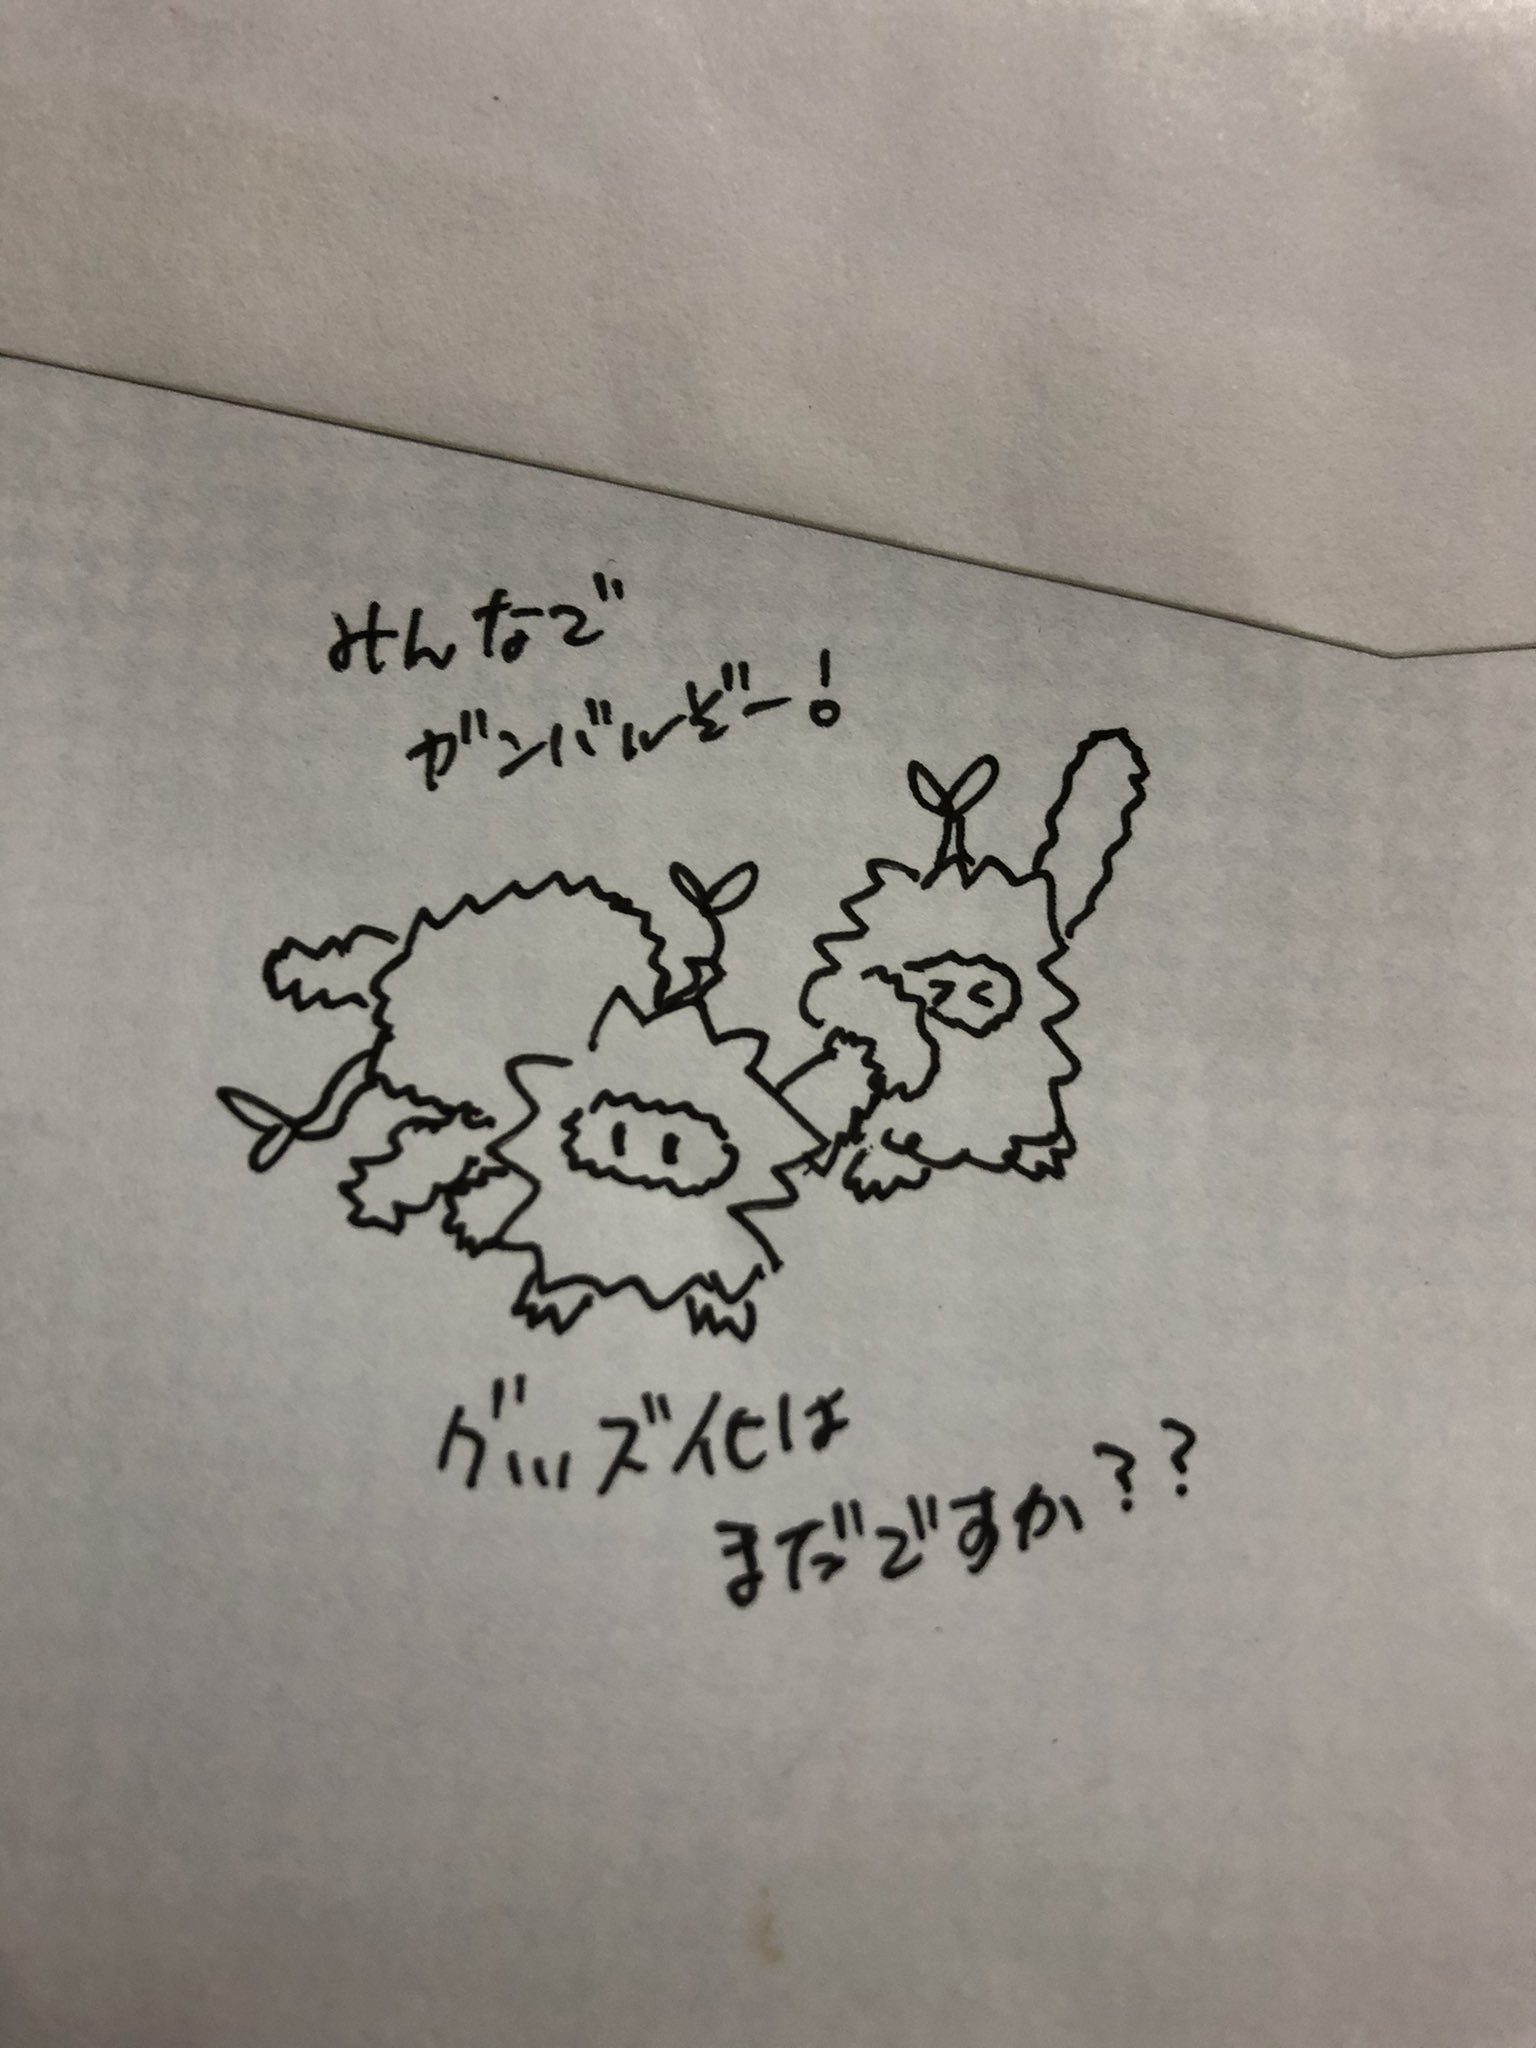 みんなで
ガンバルぞー!
グッズ化は
まだですか??